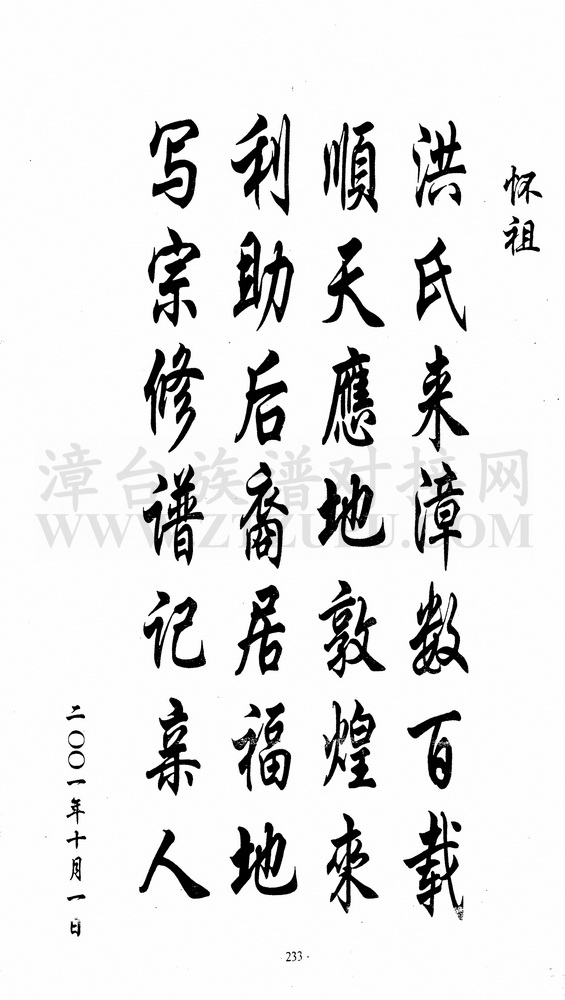 怀祖
洪氏来漳数百载
順天應地敦煌來
利助后裔居福地
写宗修谱记亲人
二〇〇一年十月一日
漳台族谱对接网
WWW.ZTZUPU.COM
·233·